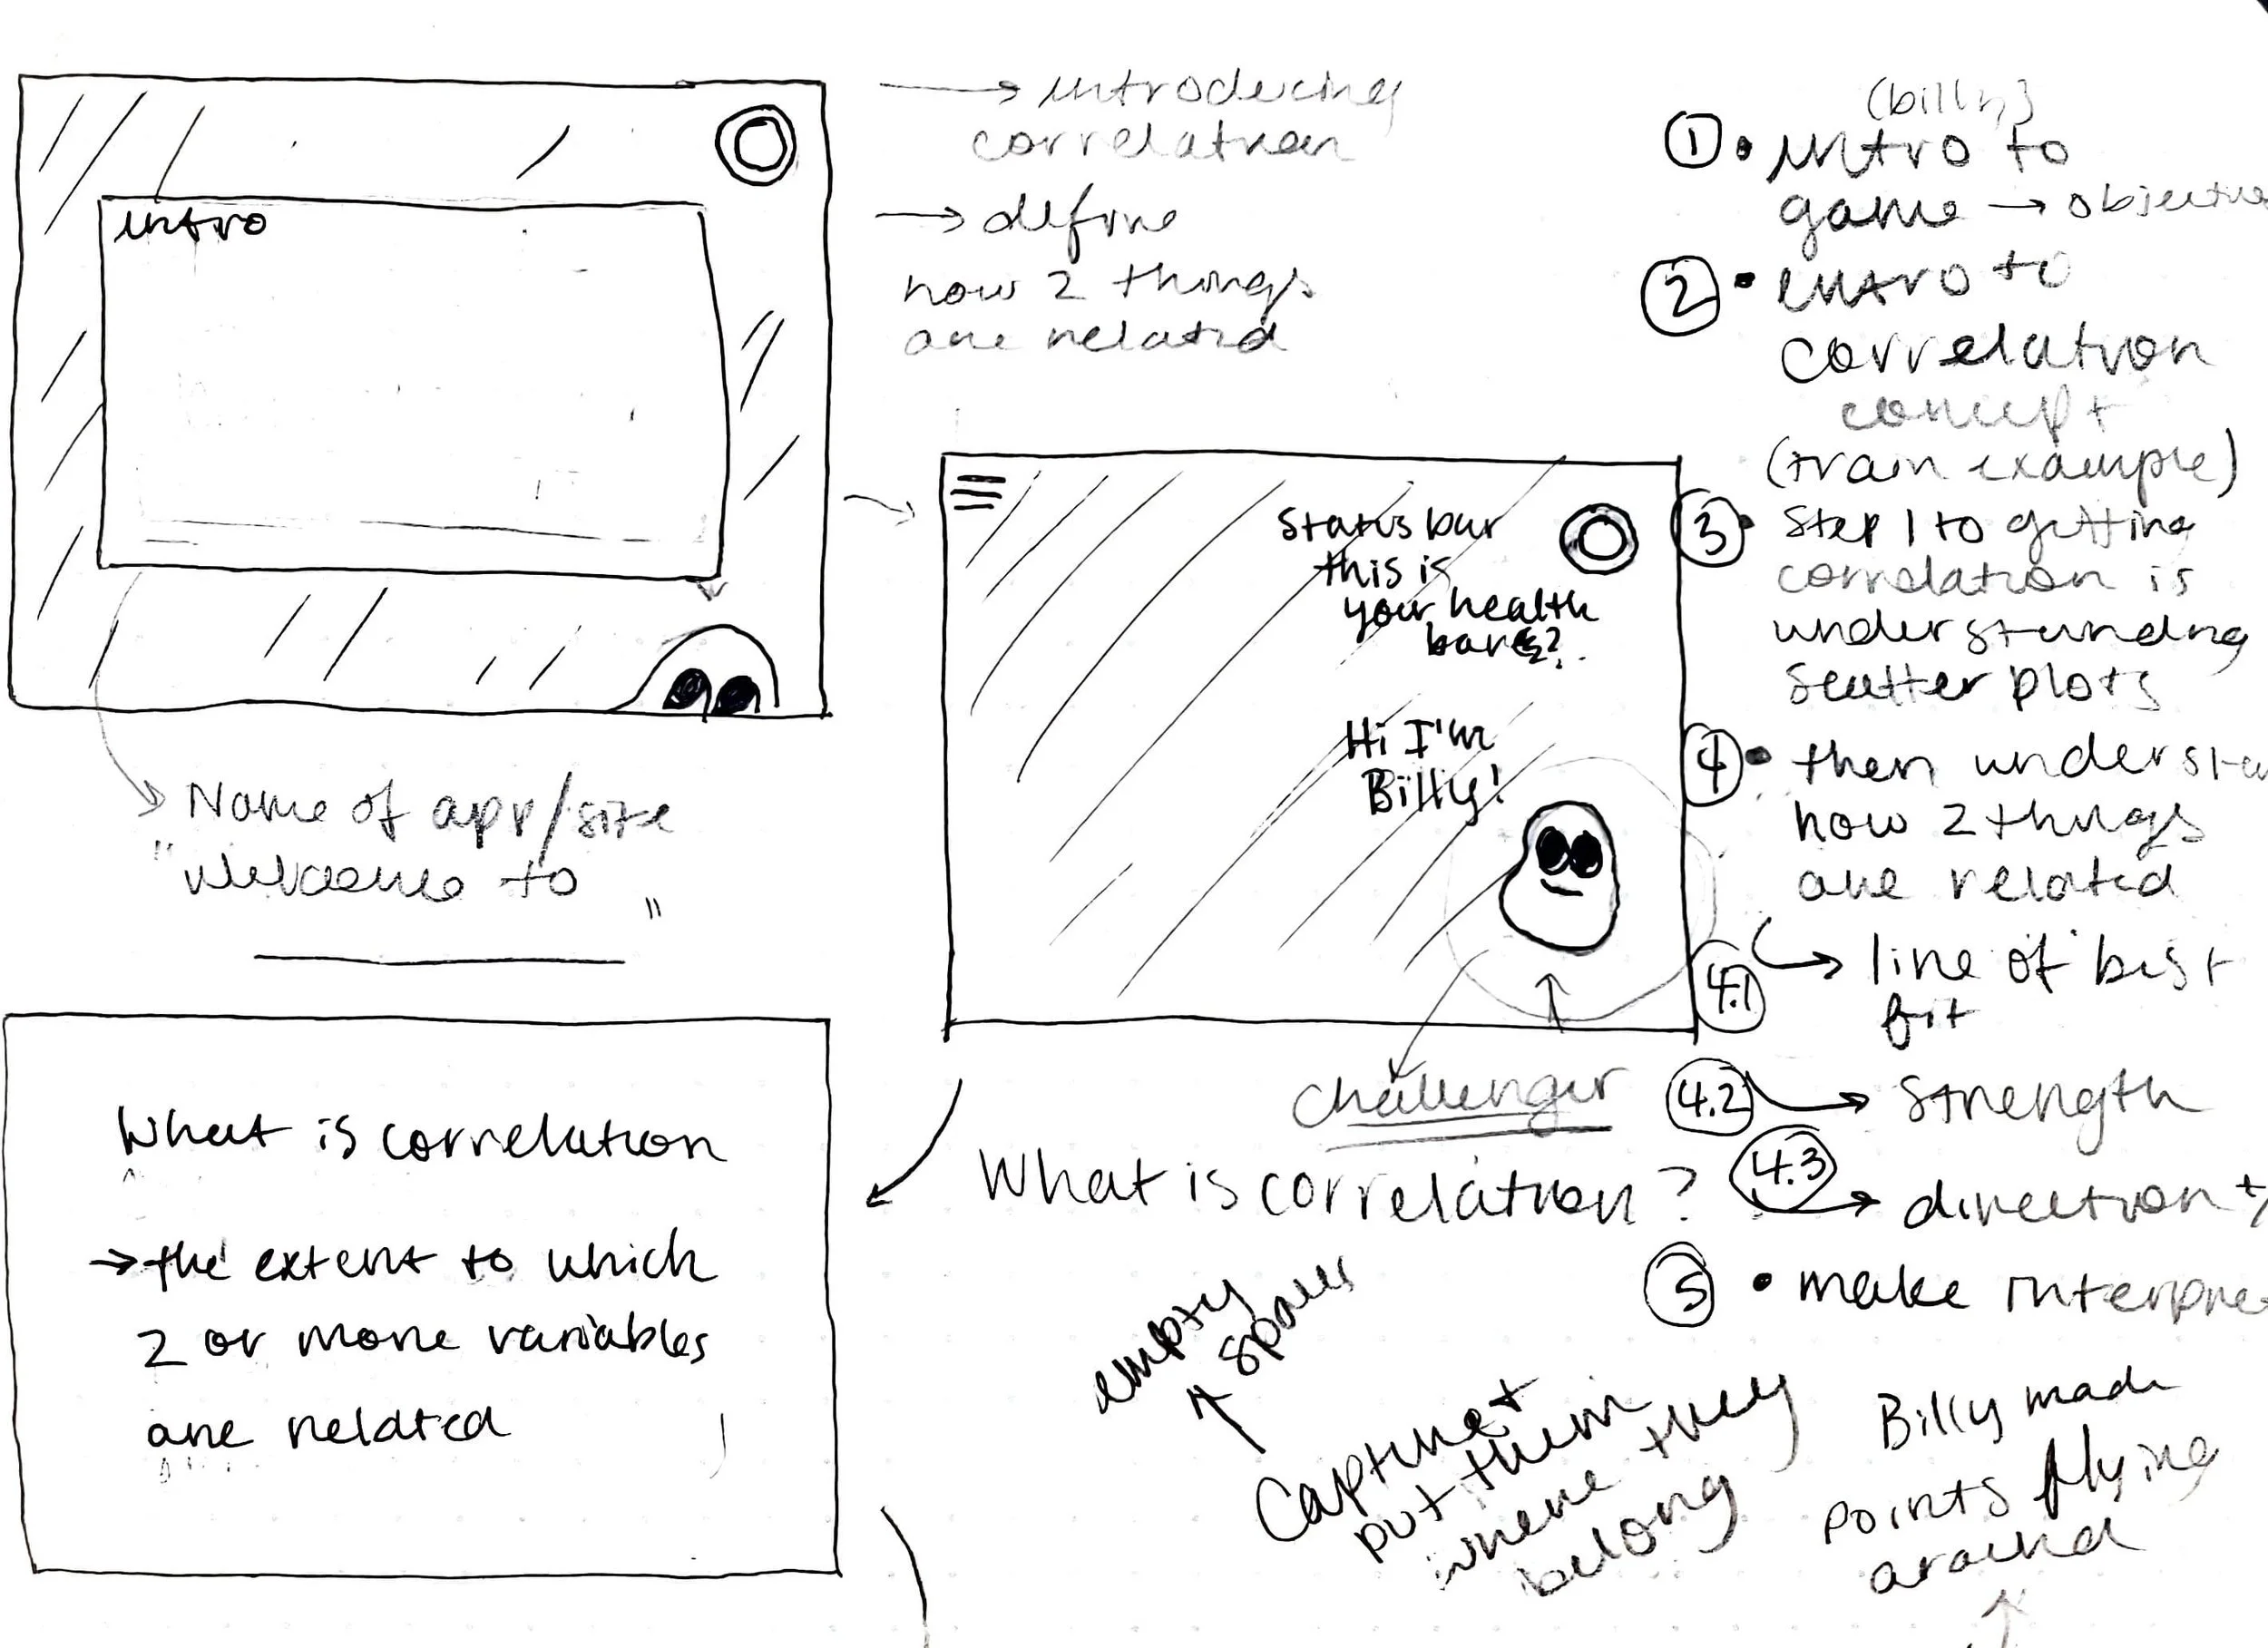 intro
→ introducing
correlation
→ define
how 2 things
are related
Name of app/site
"Welcome to
"
Status bar
this is
your health
bar
Hi I'm
Billy!
challenger
What is correlation?
What is correlation
→ the extent to which
2 or more variables
are related
(billy)
① • intro to
game → objective
② • intro to
correlation
concept
(train example)
③ • Step 1 to getting
correlation is
understanding
scatter plots
④ • then understa
how 2 things
are related
4.1 → line of best
fit
4.2 → strength
4.3 → direction +/
5 • make interpre
empty
spaces
Capture +
put them
where they
belong
Billy made
points flying
around